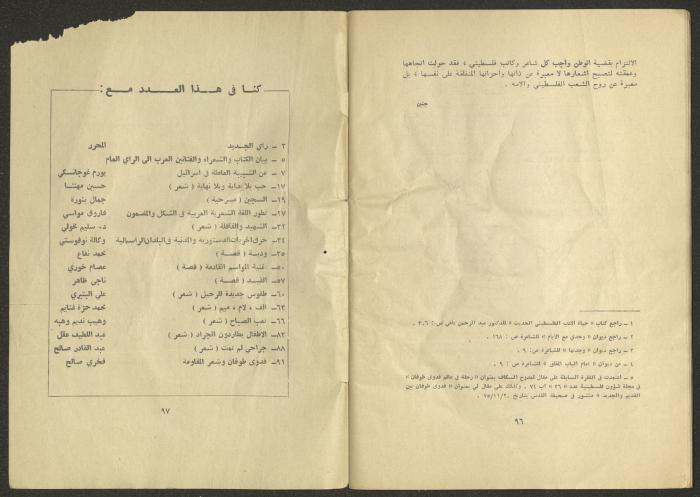 الالتزام بقضية الوطن واجب كل شاعر وكاتب فلسطيني ، فقد حولت اتجاهها
وعمقته لتصبح اشعارها لا معبرة عن ذاتها واحزانها المنغلقة على نفسها ، بل
معبرة عن روح الشعب الفلسطيني والامه .
جنين
١ ــ راجع كتاب « حياة الادب الفلسطيني الحديث » للدكتور عبد الرحمن ياغي ص : ٣٠٦ .
٢ ــ راجع ديوان « وحدي مع الايام » للشاعرة ص : ١٦٨ .
٣ ــ راجع ديوان « وجدتها » للشاعرة ص : ٩ .
٤ ــ من ديوان « امام الباب المغلق » للشاعرة ص : ٩ .
٥ ــ اعتمدت في الفقرة السابقة على مقال لممدوح السكاف بعنوان « رحلة في عالم فدوى طوقان »
في مجلة شؤون فلسطينية عدد « ٣٦ » اب ٧٤ . وكذلك على مقال لي بعنوان « فدوى طوقان بين
القديم والجديد » منشور في صحيفة القدس بتاريخ ٧٥/١١/٢٠ .
٩٦
كنا في هذا العدد مع :
٣ ــ راي الجديد المحرر
٥ ــ بيان الكتاب والشعراء والفنانين العرب الى الراي العام
٧ ــ عن الشبيبة العاملة في اسرائيل يورم غوجانسكي
١٧ــ حب بلا بداية وبلا نهاية ( شعر ) حسين مهنا
١٩ــ السجين ( مسرحية ) جمال بنورة
٢٧ــ تطور اللغة الشعرية العربية في الشكل والمضمون فاروق مواسي
٣٢ــ الشهيد والقافلة ( شعر ) د. سليم مخولي
٣٤ــ خرق الحريات الدستورية والمدنية في البلدان الراسمالية وكالة نوفوستي
٣٥ــ وديسة ( قصة ) محمد نفاع
٥٠ــ اغنية المواسم القادمة ( قصة ) عصام خوري
٥٧ــ القيد ( قصة ) ناجي ظاهر
٦٠ــ طقوس جديدة للرحيل ( شعر ) علي البتيري
٦٣ــ الف ، لام ، ميم ( شعر ) محمد حمزة غنايم
٦٦ــ تعب الصباح ( شعر ) وهيب نديم وهبه
٨٣ــ الاطفال يطاردون الجراد ( شعر ) عبد اللطيف عقل
٨٨ــ جراحي لم تمت ( شعر ) عبد القادر صالح
٩١ــ فدوى طوقان وشعر المقاومة فخري صالح
٩٧